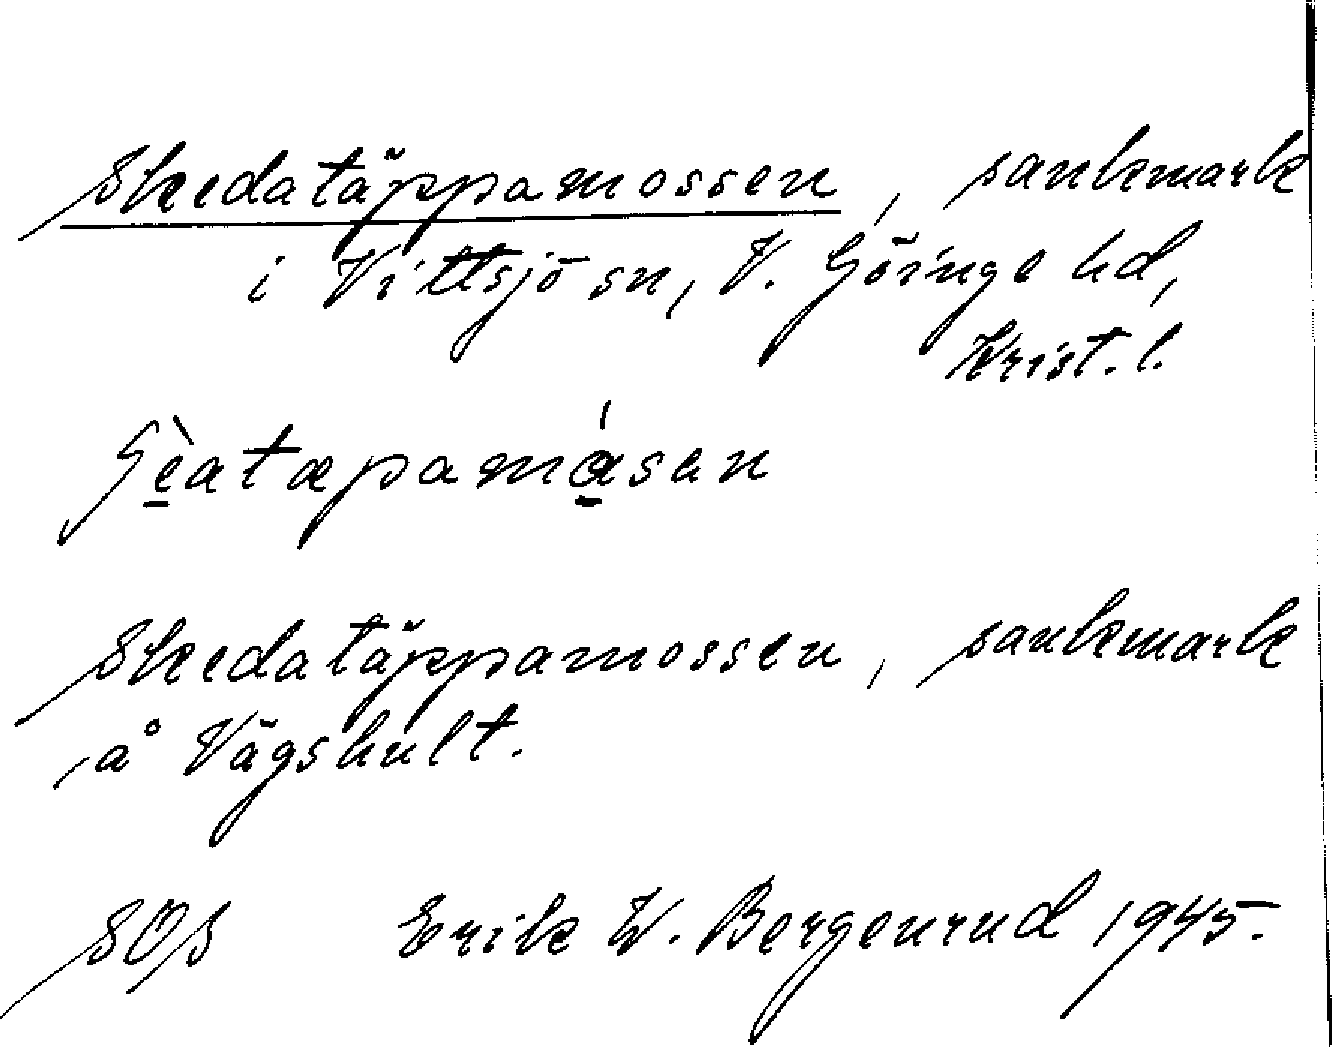 Skedatäppamossen, sankmark
i Vittsjö sn, V. Göinge hd,
Krist. l.
Skedatäppamossen, sankmark
å Vägshult.
SOS Erik W. Bergenrud 1945.